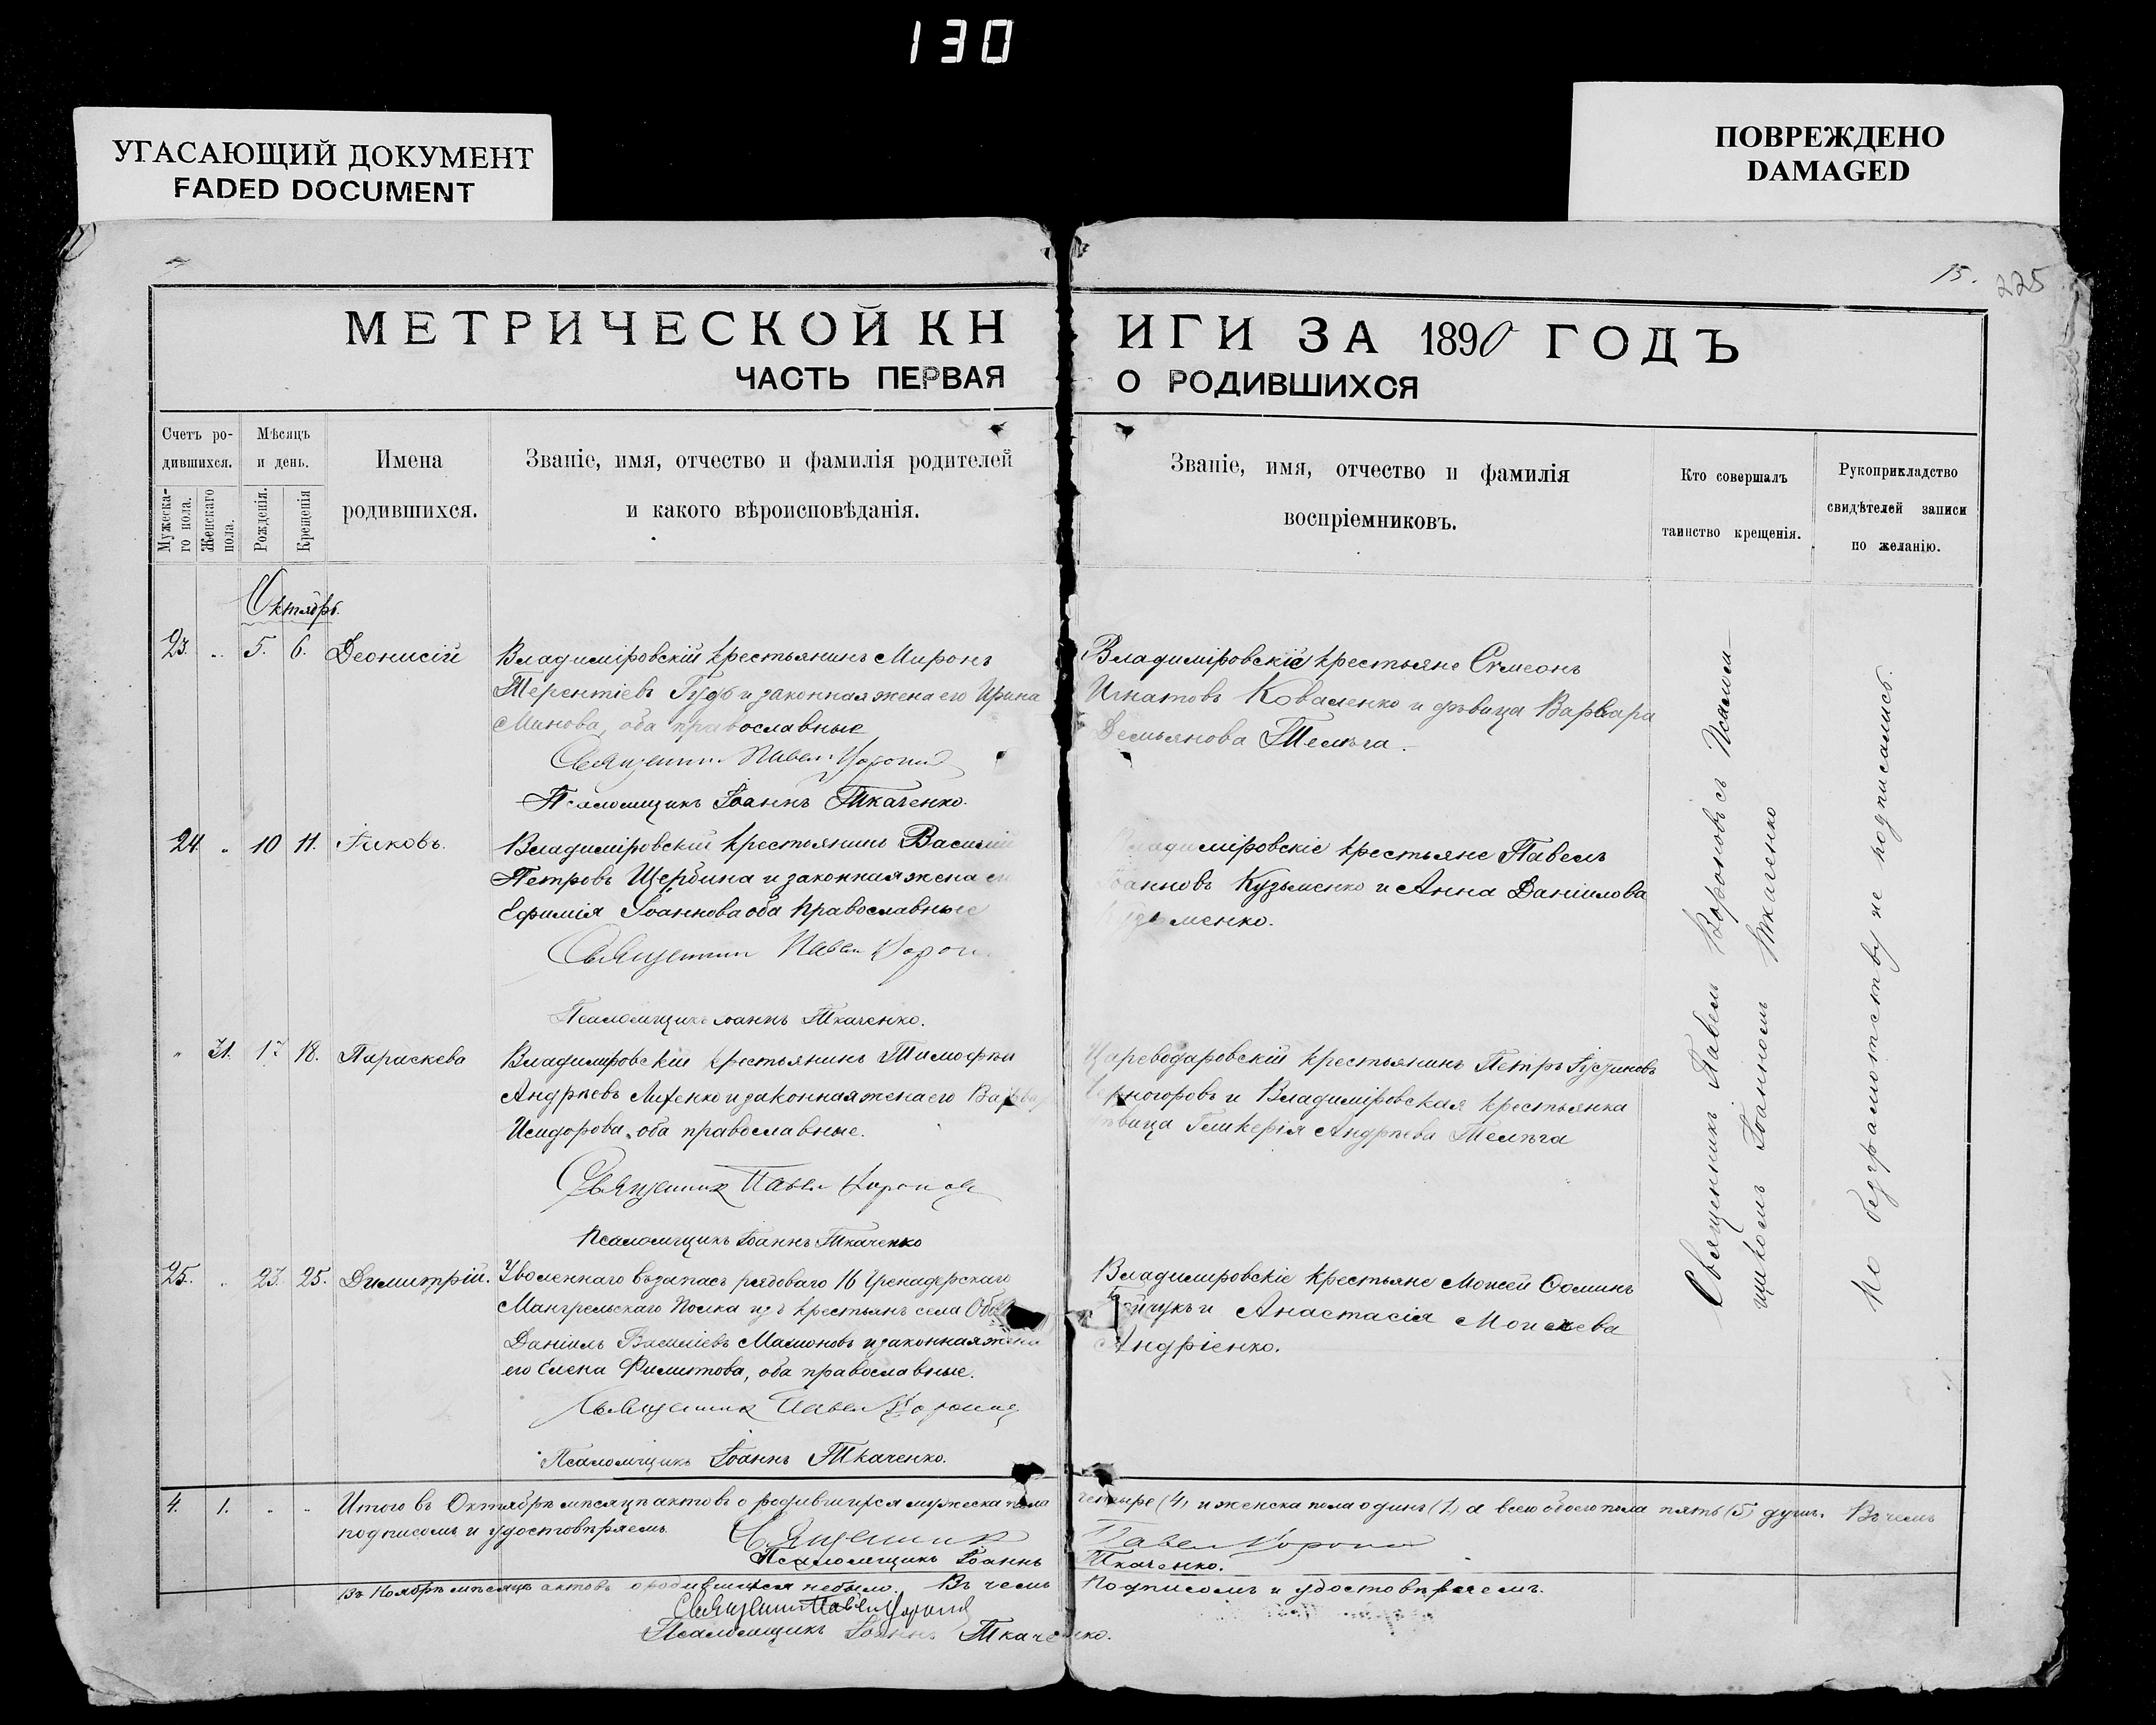 130
УГАСАЮЩИЙ ДОКУМЕНТ
FADED DOCUMENT
ПОВРЕЖДЕНО
DAMAGED
15. 225
МЕТРИЧЕСКОЙ КНИГИ ЗА 1890 ГОДЪ
ЧАСТЬ ПЕРВАЯ О РОДИВШИХСЯ
Счетъ ро-
дившихся.
Мужеска-
го пола.
Женскаго
пола.
Мѣсяцъ
и день.
Рожденія.
Крещенія
Имена
родившихся.
Званіе, имя, отчество и фамилія родителей
и какого вѣроисповѣданія.
Званіе, имя, отчество и фамилія
воспріемниковъ.
Кто совершалъ
таинство крещенія.
Рукоприкладство
свидѣтелей записи
по желанію.
Октябрь.
23. „ 5. 6. Деонисій
Владиміровскій крестьянинъ Миронъ
Терентіевъ Гудь и законная жена его Ирина
Минова, оба православные
Священник Павел
Псаломщикъ Іоаннъ Ткаченко.
Владиміровскіе крестьяне Симеонъ
Игнатовъ Коваленко и дѣвица Варвара
Демьянова Телѣга.
24. „ 10 11. Іаковъ.
Владиміровскій крестьянинъ Василій
Петровъ Щербина и законная жена его
Ефимія Іоаннова оба православные
Священник Павел
Псаломщикъ Іоаннъ Ткаченко.
Владиміровскіе крестьяне Павелъ
Іоанновъ Кузьменко и Анна Даніилова
Кузьменко.
„ 31. 17 18. Параскева
Владиміровскій крестьянинъ Тимофѣй
Андрѣевъ и законная жена его Варвара
Исидорова, оба православные.
Священник Павел
Псаломщикъ Іоаннъ Ткаченко
Цареводаровскій крестьянинъ Петръ Іустиновъ
Черногоровъ и Владиміровская крестьянка
дѣвица Гликерія Андрѣева Телѣга
25. „ 23. 25. Димитрій.
Уволеннаго въ запасъ рядоваго 16 Гренадерскаго
Мангрельскаго Полка изъ крестьянъ села
Даніилъ Василіевъ Мамоновъ и законная жена
его Елена Филиппова, оба православные.
Священник Павел
Псаломщикъ Іоаннъ Ткаченко.
Владиміровскіе крестьяне Моисей Ѳоминъ
и Анастасія Моисеева
Андріенко.
Священникъ Павелъ Вороновъ съ Псалом-
щикомъ Іоанномъ Ткаченко
По безграмотству не подписались.
4. 1. „ „ Итого въ Октябрѣ мѣсяцѣ актовъ о родившихся мужеска пола четыре (4) и женска пола одинъ (1) а всего обоего пола пять (5) душъ. Въ чемъ
подписомъ и удостовѣряемъ. Священник Павел
Псаломщикъ Іоаннъ Ткаченко.
Въ Ноябрѣ мѣсяцѣ актовъ о родившихся небыло. Въ чемъ Подписомъ и удостовѣряемъ.
Священник Павел
Псаломщикъ Іоаннъ Ткаченко.